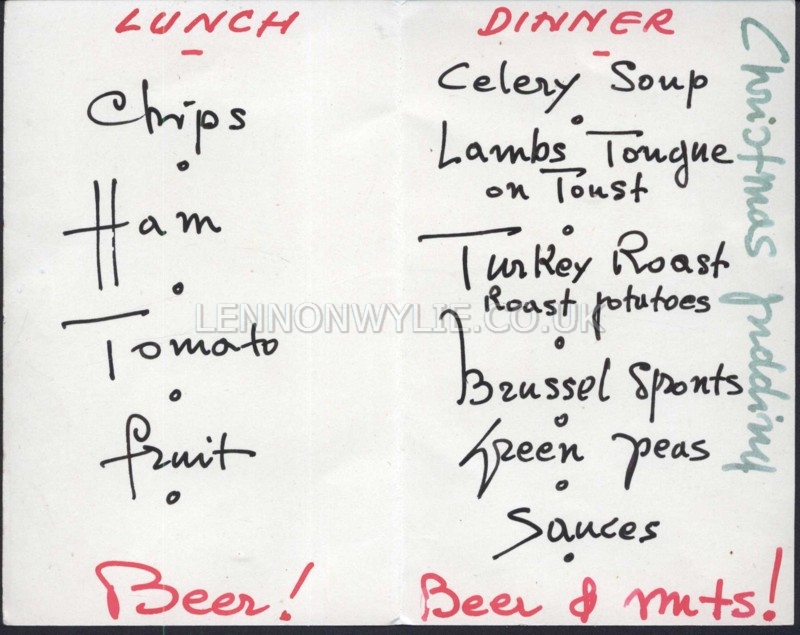 LUNCH
Chips
Ham
Tomato
fruit
Beer!
DINNER
Celery Soup
Lambs Tongue
on Toust
Turkey Roast
Roast potutoes
Brussel Spronts
Green peas
Sauces
Beer & nuts!
Christmas pudding
LENNONWYLIE.CO.UK